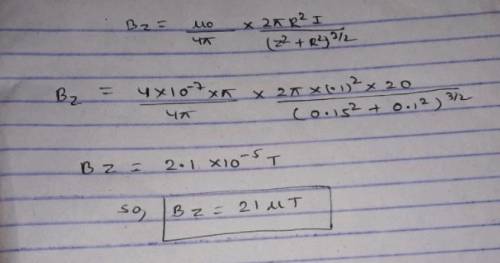 Bz = μ0/4π × 2πR²I/(z² + R²)^3/2
Bz = 4×10⁻⁷×π/4π × 2π×(.1)²×20/(0.15² + 0.1²)^3/2
Bz = 2.1 ×10⁻⁵ T
so, Bz = 21 μT